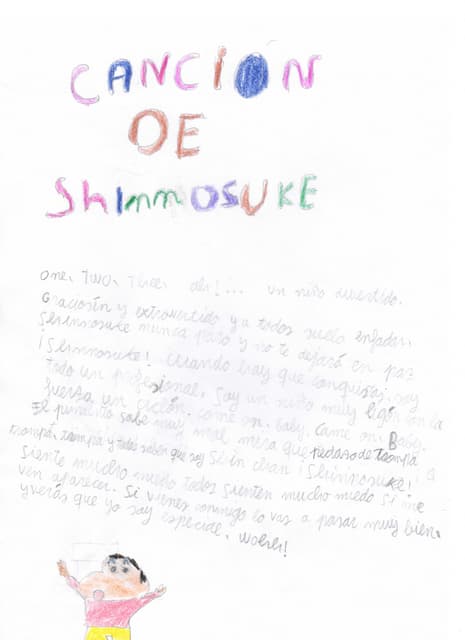 CANCIÓN
DE
ShinnOSUKE
One, TWO, Three, dli!... un niño divertido.
Graciosín y extrovertido y a todos suelo enfadar.
Shinnosuke nunca paro y no te dejará en paz
¡Shinnosuke! Cuando hay que conquistar, soy
todo un profesional, Soy un niño muy ligón con la
fuerza un ciclón. come on, baby, came on, Baby.
El pimiento sabe muy mal mira que pedazo de trompa
trompa, trompa y todos saben que soy Shin chan ¡Shinnosuke!
Siente mucho miedo todos sienten mucho miedo si me
ven aparecer. Si vienes conmigo lo vas a pasar muy bien.
y verás que yo soy especial, wohh!